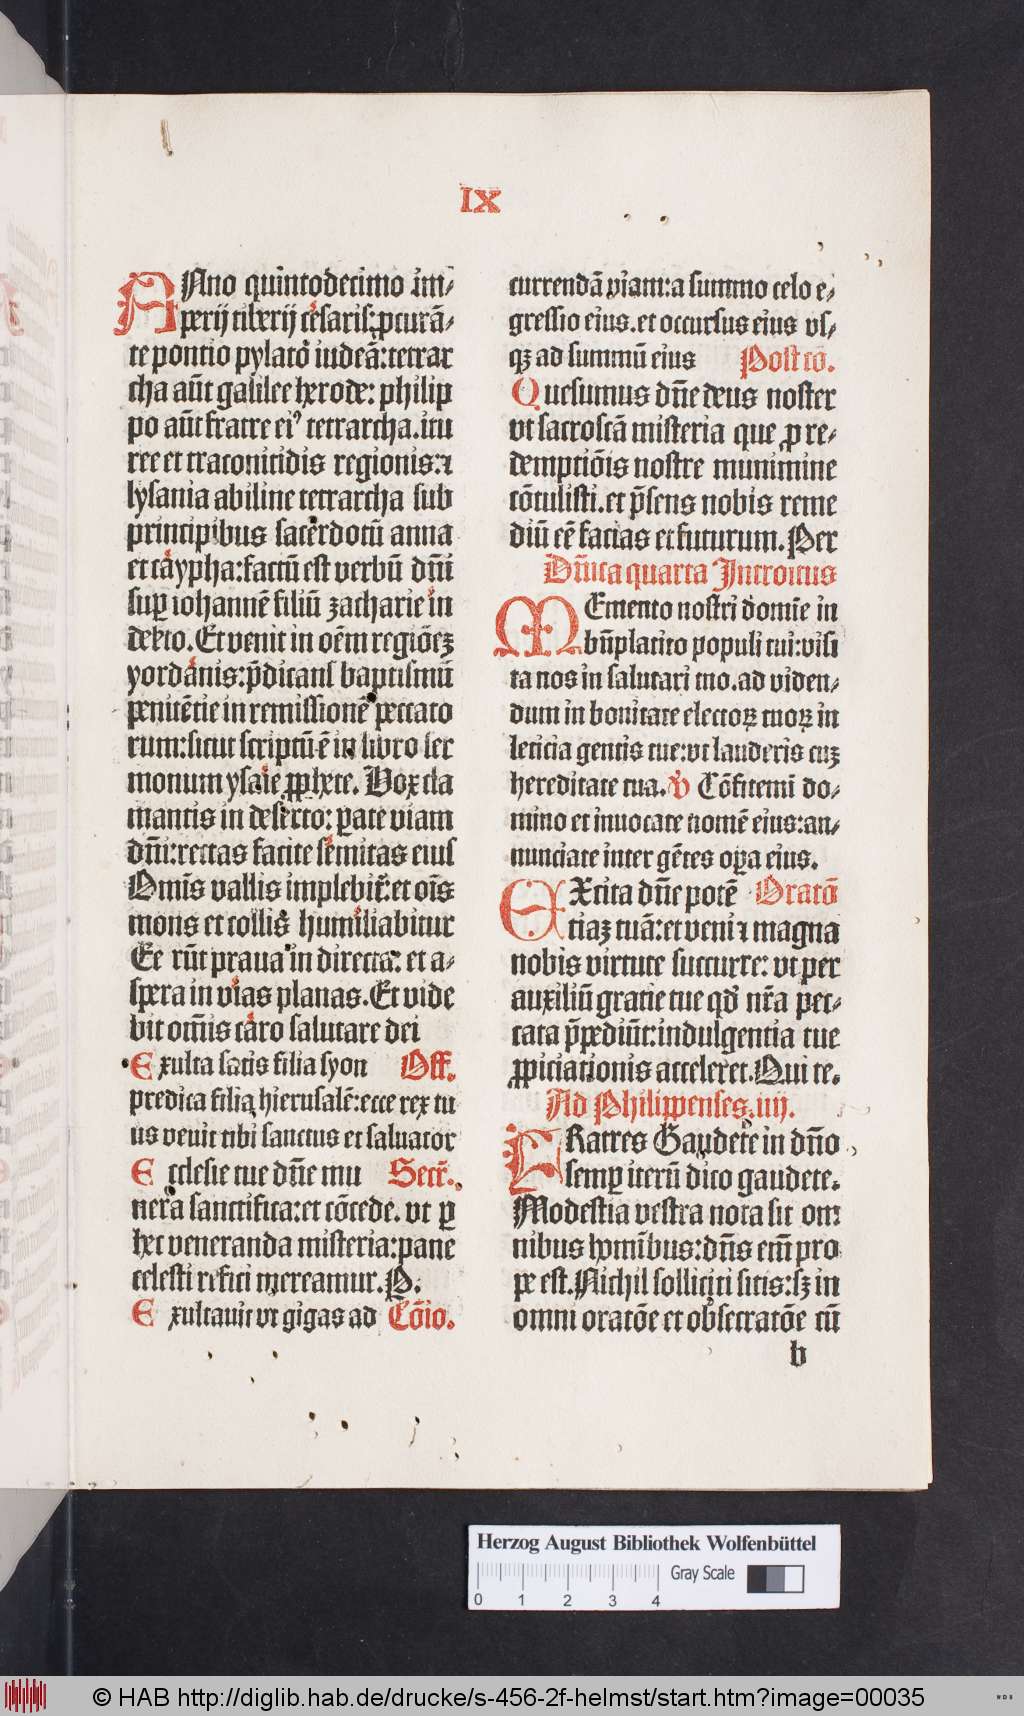 IX
ANno quintodecimo im⸗
perij tiberij cesaris: ꝓcurā⸗
te pontio pylato iudeā: tetrar
cha aūt galilee herode: philip
po aūt fratre eiꝰ tetrarcha. itu
ree et traconitidis regionis: ⁊
lysania abiline tetrarcha sub
principibus sacerdotū anna
et caypha: factū est verbū dn̄i
suꝑ iohannē filiū zacharie in
deẜto. Et venit in oēm regiōeꝫ
yordanis: p̄dicans baptismū
penitētie in remissionē peccato
rum: sicut scriptū ē in libro ser
monum ysaie ꝓphete. Vox cla
mantis in deserto: ꝑate viam
dn̄i: rectas facite semitas eius
Omīs vallis implebit᷑: et oīs
mons et collis humiliabitur
Et erūt praua in directa: et a⸗
spera in vias planas. Et vide
bit omīs caro salutare dei
Exulta satis filia syon Off.
predica filia hierusalē: ecce rex tu
us venit tibi sanctus et saluator
Ecclesie tue dn̄e mu Secr̄.
nera sanctifica: et cōcede. vt ꝑ
hec veneranda misteria: pane
celesti refici mereamur. P.
Exultauit vt gigas ad Cōio.
currendā viam: a summo celo e⸗
gressio eius. et occursus eius vs⸗
qꝫ ad summū eius Post cō.
Quesumus dn̄e deus noster
vt sacroscā misteria que ꝓ re⸗
demptiōis nostre munimine
cōtulisti. et p̄sens nobis reme
diū eē facias et futurum. Per
Dn̄ica quarta Introitus
MEmento nostri domīe in
bn̄placito populi tui: visi
ta nos in salutari tuo. ad viden⸗
dum in bonitate electoꝝ tuoꝝ in
leticia gentis tue: vt lauderis cuꝫ
hereditate tua. V̓ Cōfitemī do⸗
mino et inuocate nomē eius: an⸗
nunciate inter gētes oꝑa eius.
EXcita dn̄e potē Oratō
tiaꝫ tuā: et veni ⁊ magna
nobis virtute succurre: vt per
auxiliū gratie tue qd̄ nr̄a pec⸗
cata p̄pediūt: indulgentia tue
ꝓpiciationis acceleret. Qui te.
Ad Philippenses. iiij.
FRatres Gaudete in dn̄o
semꝑ iterū dico gaudete.
Modestia vestra nota sit om
nibus homībus: dn̄s em̄ pro
pe est. Nichil solliciti sitis: sꝫ in
omni oratōe et obsecratōe cū
b
Herzog August Bibliothek Wolfenbüttel
Gray Scale
0 1 2 3 4
© HAB http://diglib.hab.de/drucke/s-456-2f-helmst/start.htm?image=00035